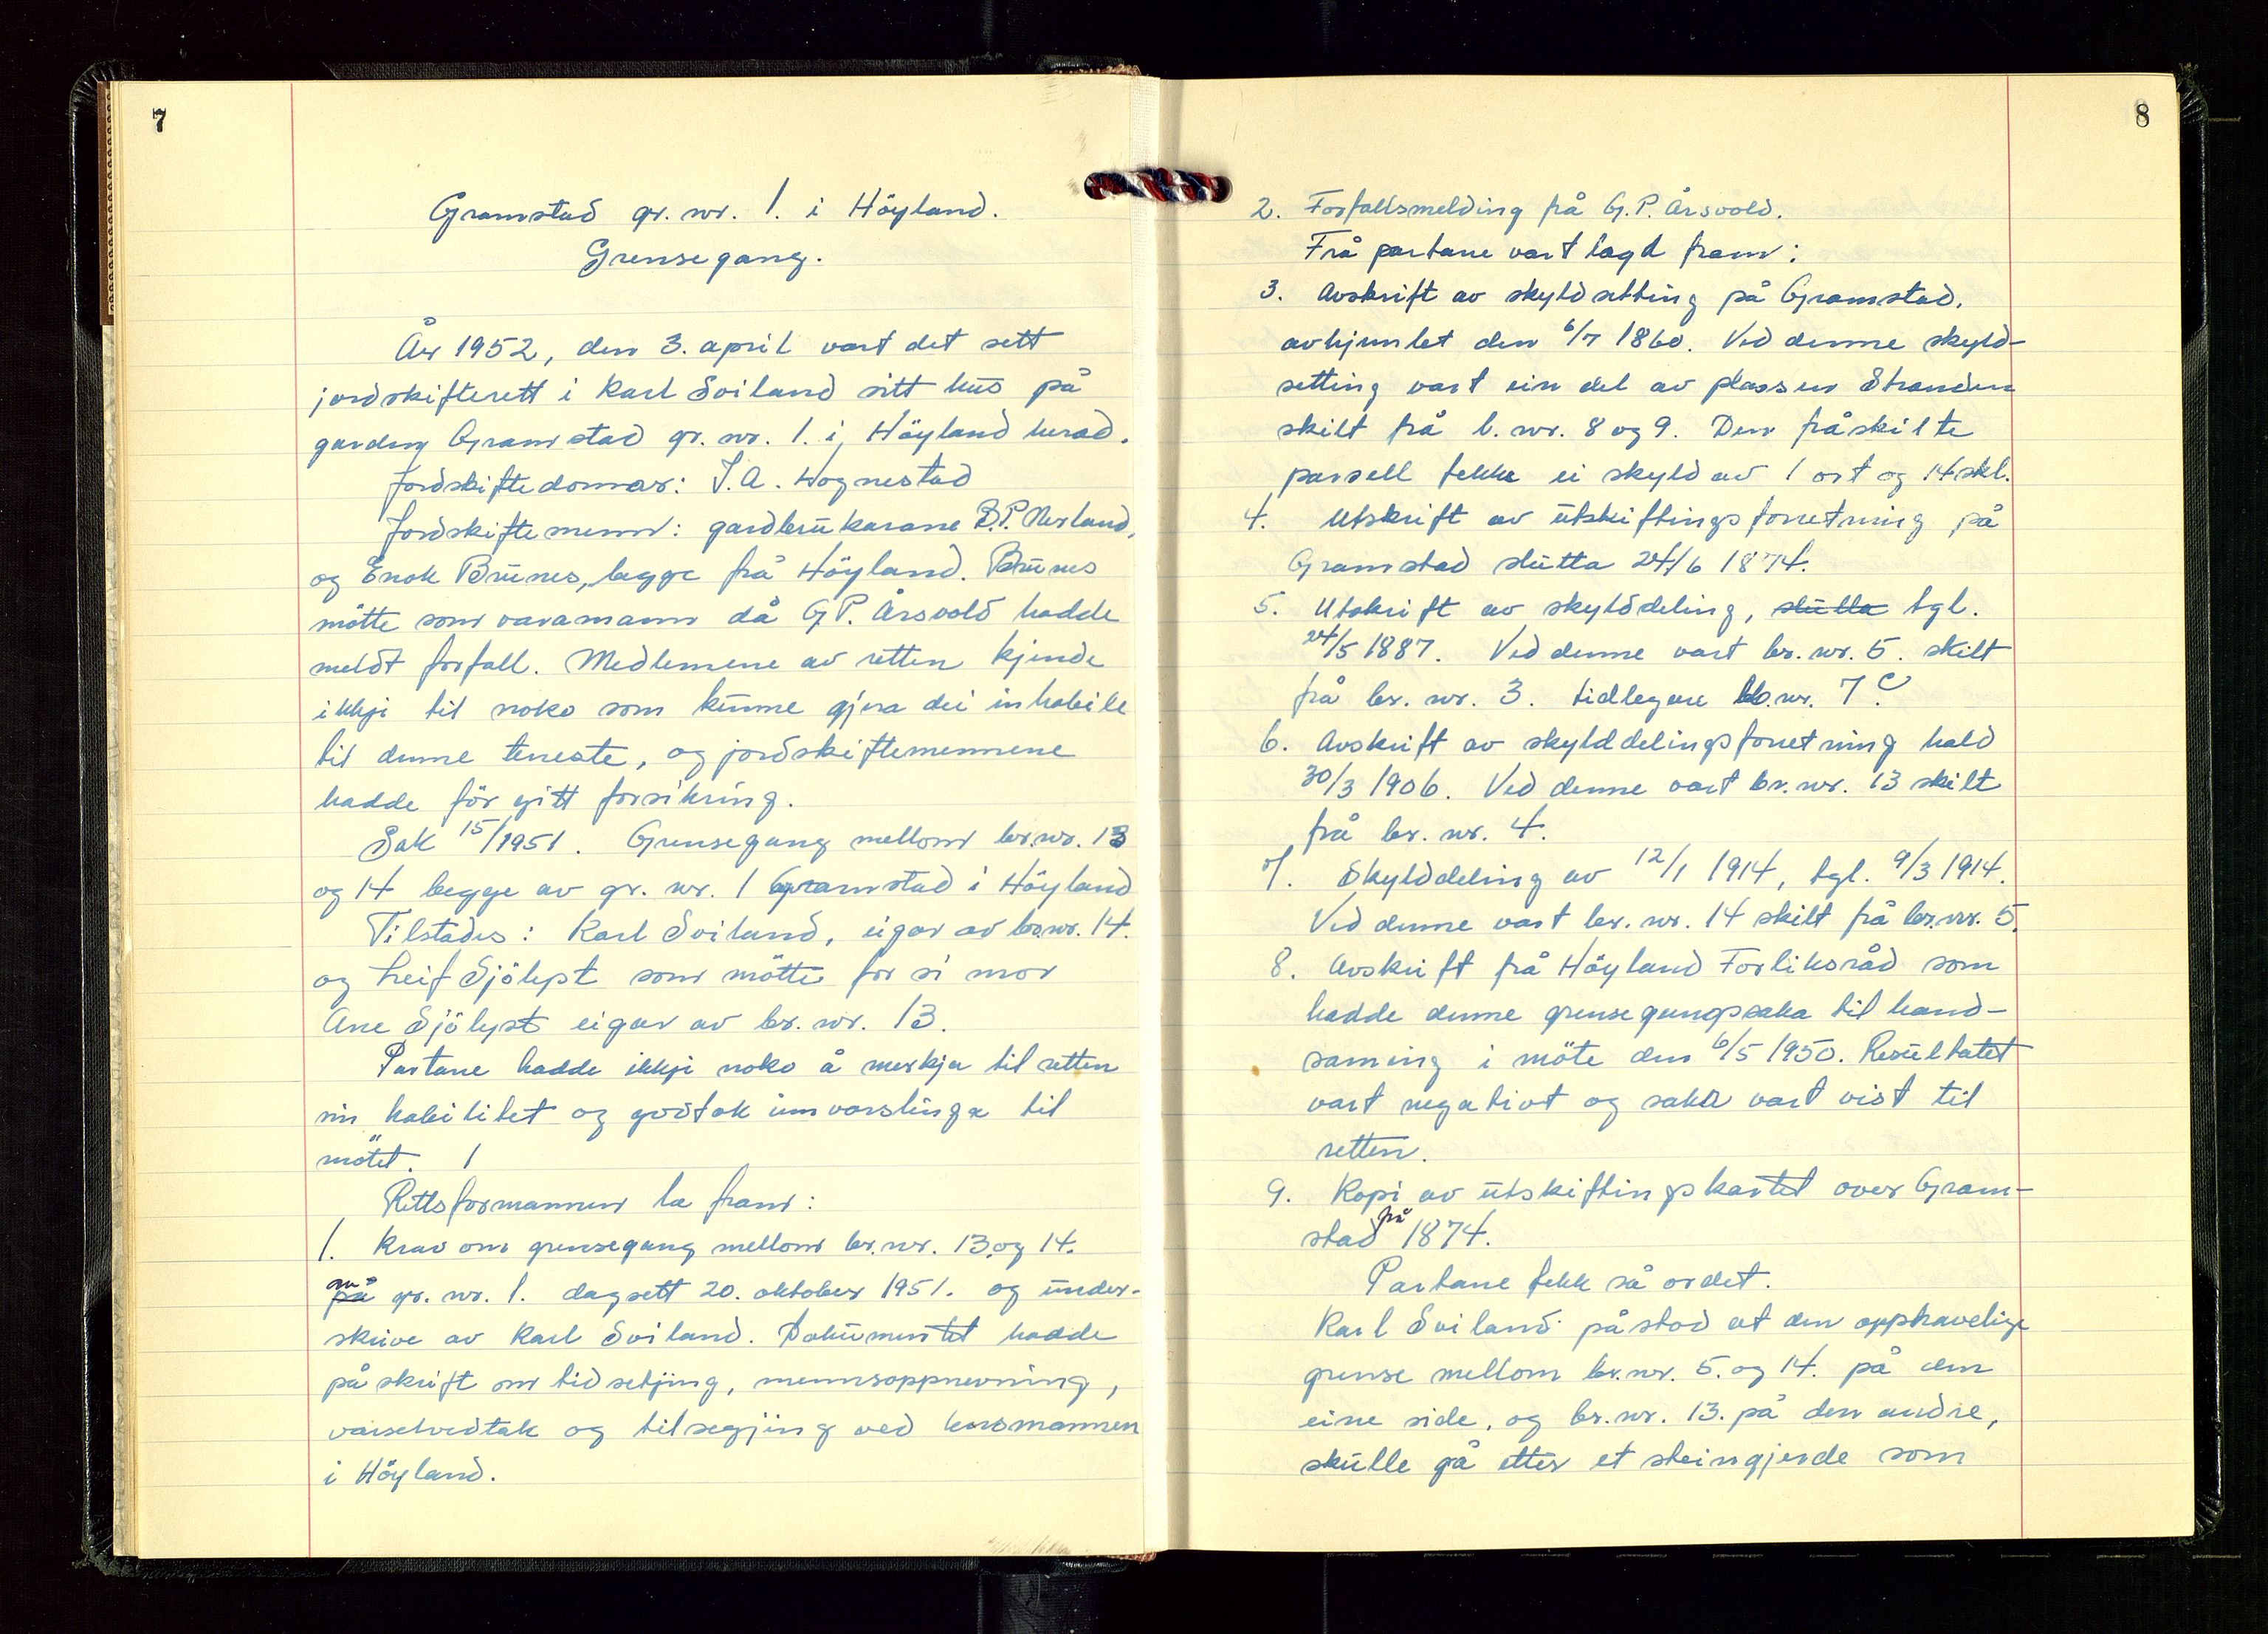 7
Gramstad gr. nr. 1. i Höyland.
Grensegang.
År 1952, den 3. april vart det sett
jordskifterett i Karl Sviland sitt hus på
garden Gramstad gr. nr. 1. i Höyland herad.
Jordskiftedomar: T.A. Hognestad
Jordskiftemenn: gardbrukarane B.P. Nerland,
og Enok Brunes, begge frå Höyland. Brunes
mötte som varamann då G P. Årsvold hadde
meldt forfall. Medlemene av retten kjende
ikkje til noko som kunne gjera dei inhabile
til denne teneste, og jordskiftemennene
hadde för gitt forsikring.
Sak 15/1951. Grensegang mellom br.nr. 13
og 14 begge av gr. nr. 1 Gramstad i Höyland
Tilstades: Karl Sviland, eigar av br.nr. 14.
og Leif Sjölyst som mötte for si mor
Ane Sjölyst eigar av br. nr. 13.
Partane hadde ikkje noko å merkja til retten
sin habilitet og godtok innvarslinga til
mötet. 1
Rettsformannen la fram:
1. Krav om grensegang mellom br.nr. 13. og 14.
på av gr. nr. 1. dagsett 20. oktober 1951. og under-
skrive av Karl Sviland. Dokumentet hadde
påskrift om tidsetjing, mennsoppnevning,
varselvedtak og tilsegjing ved lensmannen
i Höyland.
8
2. Forfallsmelding frå G.P. Årsvold.
Frå partane vart lagd fram:
3. Avskrift av skyldsetting på Gramstad,
avhjemlet den 6/7 1860. Ved denne skyld-
setting vart ein del av plassen Stranden
skilt frå b. nr. 8 og 9. Den fråskilte
parsell fekk ei skyld av 1 ort og 14 skl.
4. Utskrift av utskiftingsforretning på
Gramstad slutta 24/6 1874.
5. Utskrift av skylddeling, slutta tgl.
24/5 1887. Ved denne vart br. nr. 5. skilt
frå br. nr. 3. tidlegare lb.nr. 7 c.
6. Avskrift av skylddelingsforretning hald
30/3 1906. Ved denne vart br.nr. 13 skilt
frå br. nr. 4.
7. Skylddeling av 12/1 1914, tgl. 9/3 1914.
Ved denne vart br. nr. 14 skilt frå br.nr. 5.
8. Avskrift frå Höyland Forliksråd som
hadde denne grensegangssaka til hand-
saming i möte den 6/5 1950. Resultatet
vart negativt og saka vart vist til
retten.
9. Kopi av utskiftingskartet over Gram-
stad frå 1874.
Partane fekk så ordet.
Karl Sviland påstod at den opphavelige
grense mellom br.nr. 5. og 14. på den
eine side, og br.nr. 13. på den andre,
skulle gå etter et steingjerde som